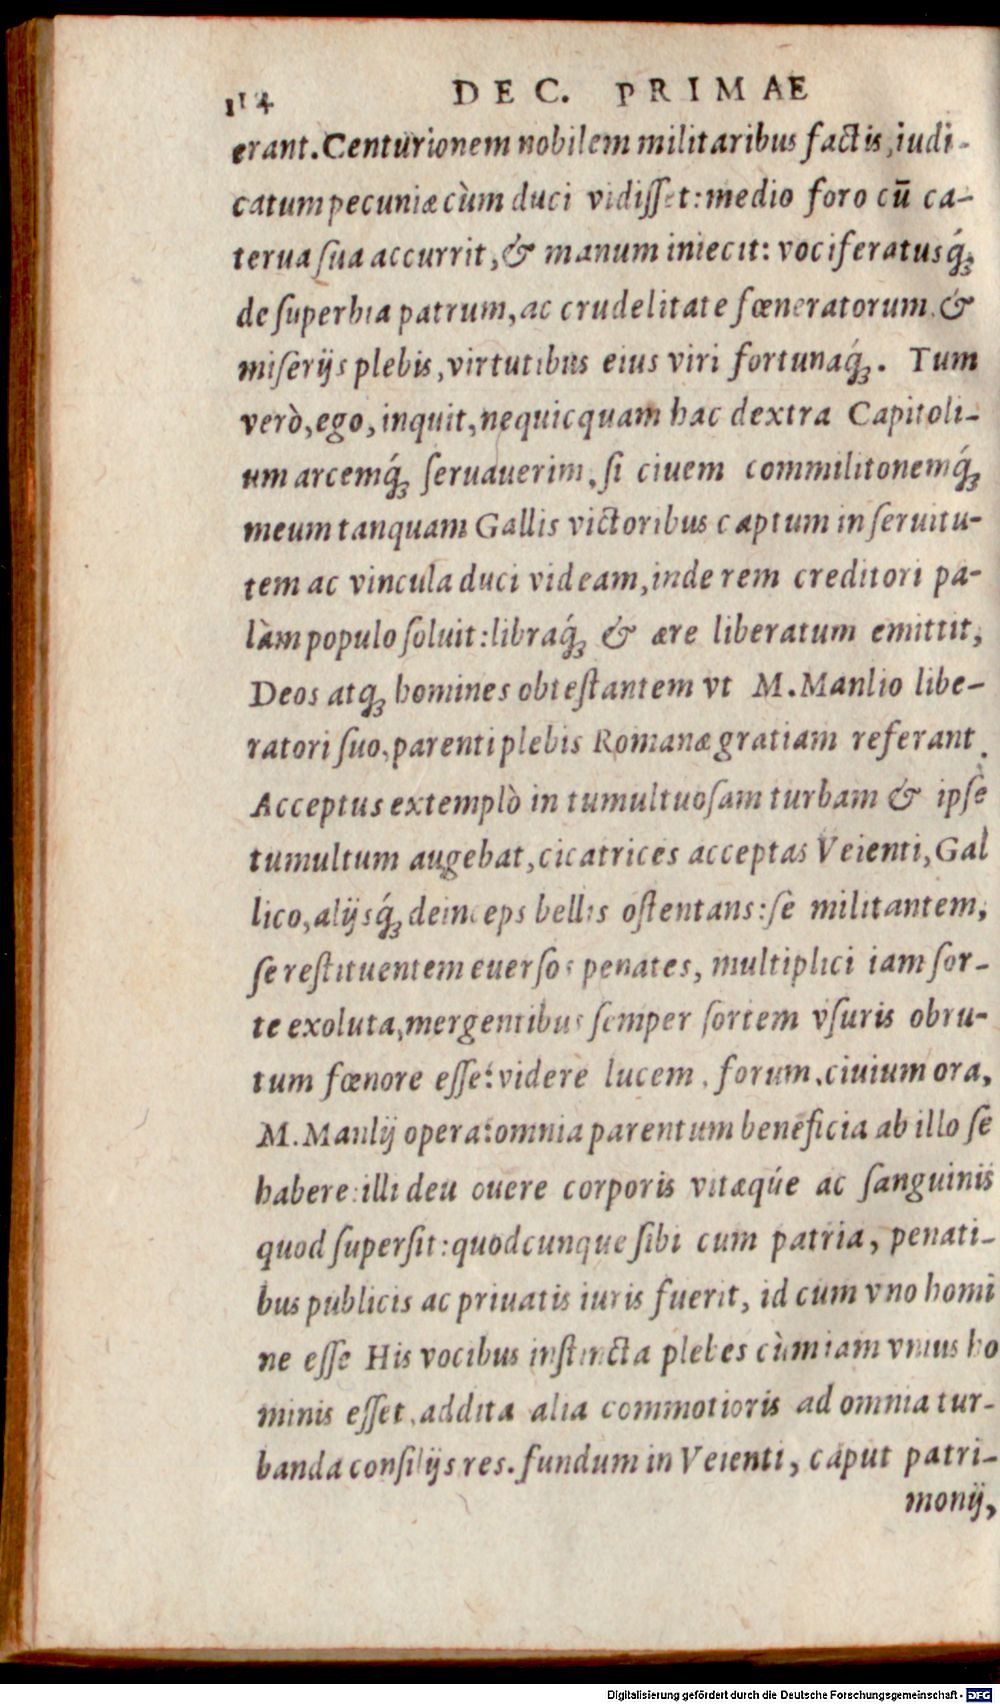 114 DEC. PRIMAE
erant. Centurionem nobilem militaribus factis, iudi-
catum pecuniæ cùm duci vidiſſet: medio foro cū ca-
terua ſua accurrit, & manum iniecit: vociferatusq́ꝫ
de ſuperbia patrum, ac crudelitate fœneratorum, &
miſerijs plebis, virtutibus eius viri fortunaq́ꝫ. Tum
verò, ego, inquit, nequicquam hac dextra Capitoli-
um arcemq́ꝫ ſeruauerim, ſi ciuem commilitonemq́ꝫ
meum tanquam Gallis victoribus captum in ſeruitu-
tem ac vincula duci videam, inde rem creditori pa-
làm populo ſoluit: libraq́ꝫ & ære liberatum emittit,
Deos atqꝫ homines obteſtantem vt M. Manlio libe-
ratori ſuo, parenti plebis Romanæ gratiam referant.
Acceptus extemplò in tumultuoſam turbam & ipſe
tumultum augebat, cicatrices acceptas Veienti, Gal
lico, alijsq́ꝫ deinceps bellis oſtentans: ſe militantem,
ſe reſtituentem euerſos penates, multiplici iam ſor-
te exoluta, mergentibus ſemper ſortem vſuris obru-
tum fœnore eſſe: videre lucem, forum, ciuium ora,
M. Manlij opera: omnia parentum beneficia ab illo ſe
habere: illi deuouere corporis vitæq́ue ac ſanguinis
quod ſuperſit: quodcunque ſibi cum patria, penati-
bus publicis ac priuatis iuris fuerit, id cum vno homi
ne eſſe His vocibus inſtincta plebes cùm iam vnius ho
minis eſſet, addita alia commotioris ad omnia tur-
banda conſilijs res. fundum in Veienti, caput patri-
monij,
Digitalisierung gefördert durch die Deutsche Forschungsgemeinschaft - DFG